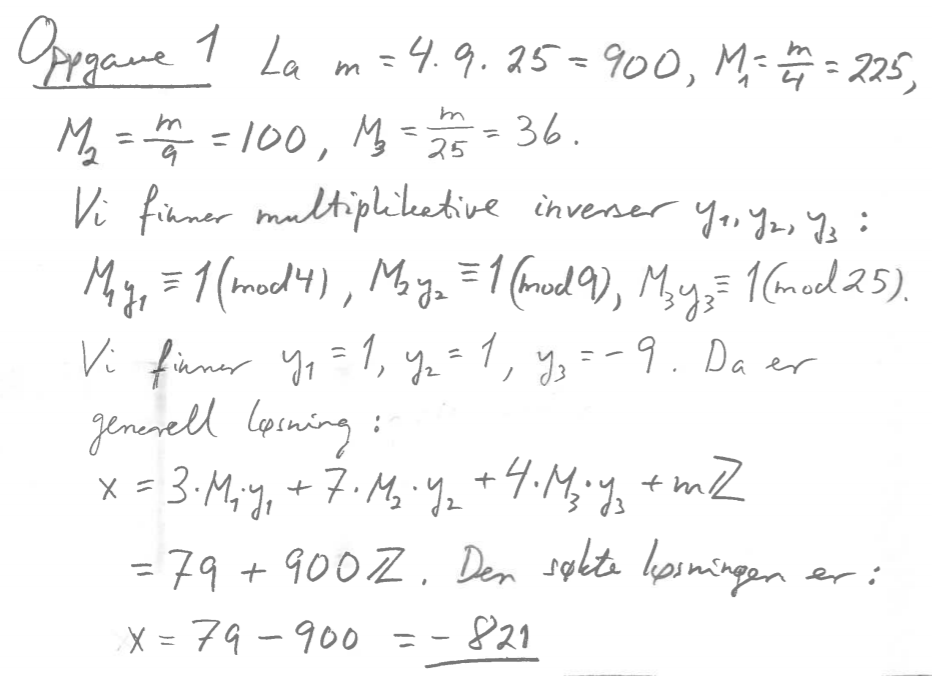 Oppgave 1 La m = 4 · 9 · 25 = 900, M₁ = m/4 = 225,
M₂ = m/9 = 100, M₃ = m/25 = 36.
Vi finner multiplikative inverser y₁, y₂, y₃ :
M₁y₁ ≡ 1 (mod 4), M₂y₂ ≡ 1 (mod 9), M₃y₃ ≡ 1 (mod 25).
Vi finner y₁ = 1, y₂ = 1, y₃ = -9. Da er
generell løsning :
x = 3·M₁·y₁ + 7·M₂·y₂ + 4·M₃·y₃ + mℤ
= 79 + 900ℤ. Den søkte løsningen er :
x = 79 - 900 = -821